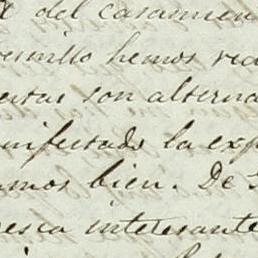 del casamien
hemos
son alterna
nifestado la exp
amos bien. De
esca interesante